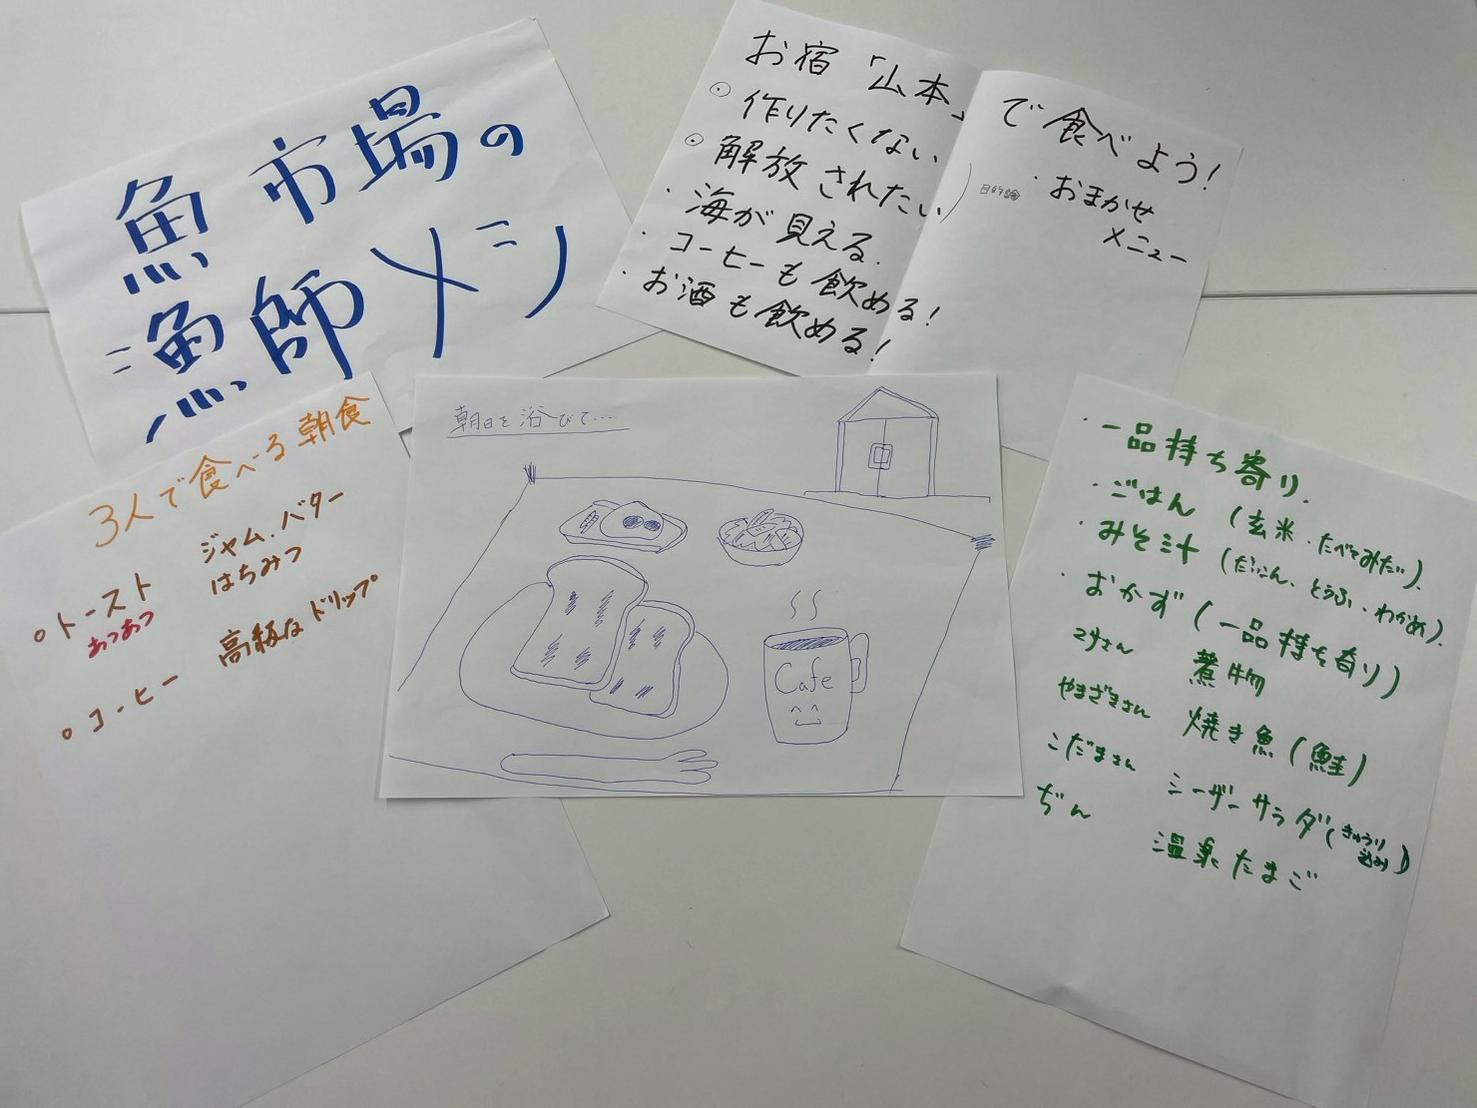 魚市場の
漁師メシ
お宿「山本」で食べよう!
作りたくない
解放されたい
目的論
・海が見える.
・コーヒーも飲める!
・お酒も飲める!
・おまかせ
メニュー
3人で食べる朝食
○トースト
あつあつ
ジャム、バター
はちみつ
○コーヒー 高級なドリップ
朝日を浴びて…
Cafe
・一品持ち寄り.
・ごはん(玄米.たべてみたい).
・みそ汁(だいこん、とうふ、わかめ).
・おかず(一品持ち寄り)
煮物
やまざきさん 焼き魚(鮭)
こだまさん シーザーサラダ(きゅうり
込み)
ぢん 温泉たまご